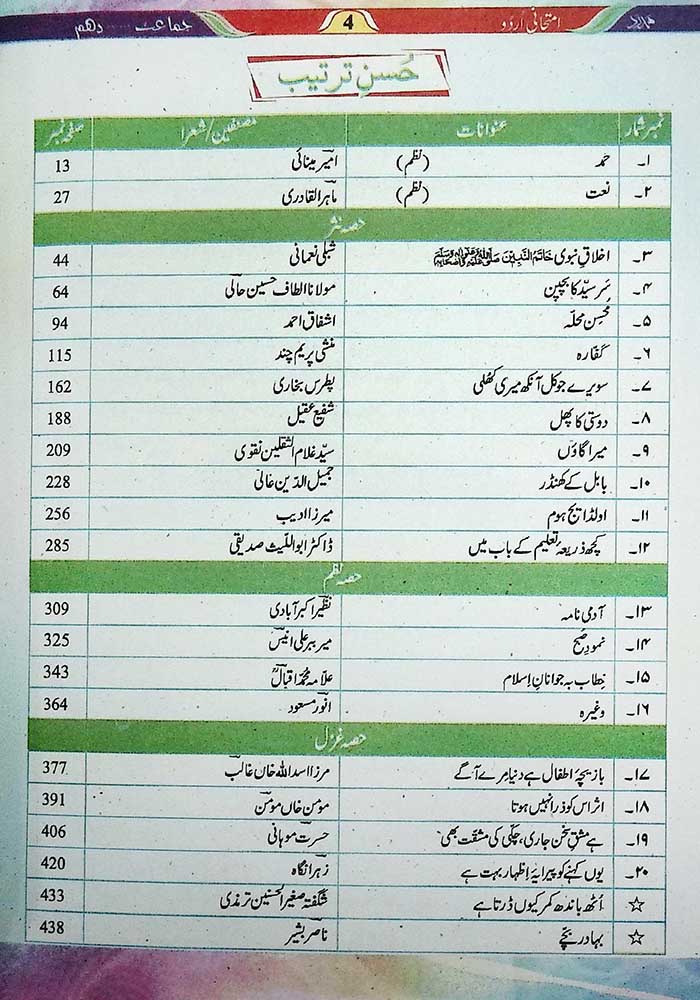 امتحانی اردو 4 جماعت دہم
حُسنِ ترتیب
نمبر شمار عنوانات مصنفین/شعرا صفحہ نمبر
۱۔ حمد (نظم) امیر مینائی 13
۲۔ نعت (نظم) ماہر القادری 27
حصہ نثر
۳۔ اخلاقِ نبوی خَاتَمُ النَّبِیّٖنَ صَلَّی اللّٰہُ عَلَیْہِ وَعَلٰی اٰلِہٖ وَاَصْحَابِہٖ وَسَلَّمَ شبلی نعمانی 44
۴۔ سَر سیّد کا بچپن مولانا الطاف حسین حالی 64
۵۔ مُحسنِ محلّہ اشفاق احمد 94
۶۔ کفّارہ منشی پریم چند 115
۷۔ سویرے جو کل آنکھ میری کھُلی پطرس بخاری 162
۸۔ دوستی کا پھل شفیع عقیل 188
۹۔ میرا گاؤں سیّد غلام الثقلین نقوی 209
۱۰۔ بابل کے کھنڈر جمیل الدّین عالی 228
۱۱۔ اولڈ ایج ہوم میرزا ادیب 256
۱۲۔ کچھ ذریعۂ تعلیم کے باب میں ڈاکٹر ابواللّیث صدیقی 285
حصہ نظم
۱۳۔ آدمی نامہ نظیر اکبر آبادی 309
۱۴۔ نمودِ صُبح میر ببر علی انیس 325
۱۵۔ خِطاب بہ جوانانِ اِسلام علّامہ محمّد اقبالؒ 343
۱۶۔ وغیرہ انور مسعود 364
حصہ غزل
۱۷۔ بازیچۂ اطفال ہے دنیا مِرے آگے مرزا اسد اللہ خاں غالب 377
۱۸۔ اثر اس کو ذرا نہیں ہوتا مومن خاں مومن 391
۱۹۔ ہے مشقِ سُخن جاری، چکّی کی مشقّت بھی حسرت موہانی 406
۲۰۔ یوں کہنے کو پیرایۂ اِظہار بہت ہے زہرا نگاہ 420
☆ اُٹھ باندھ کمر کیوں ڈرتا ہے شگفتہ صغیر الحسنین ترمذی 433
☆ بہادر بچّے ناصر بشیر 438